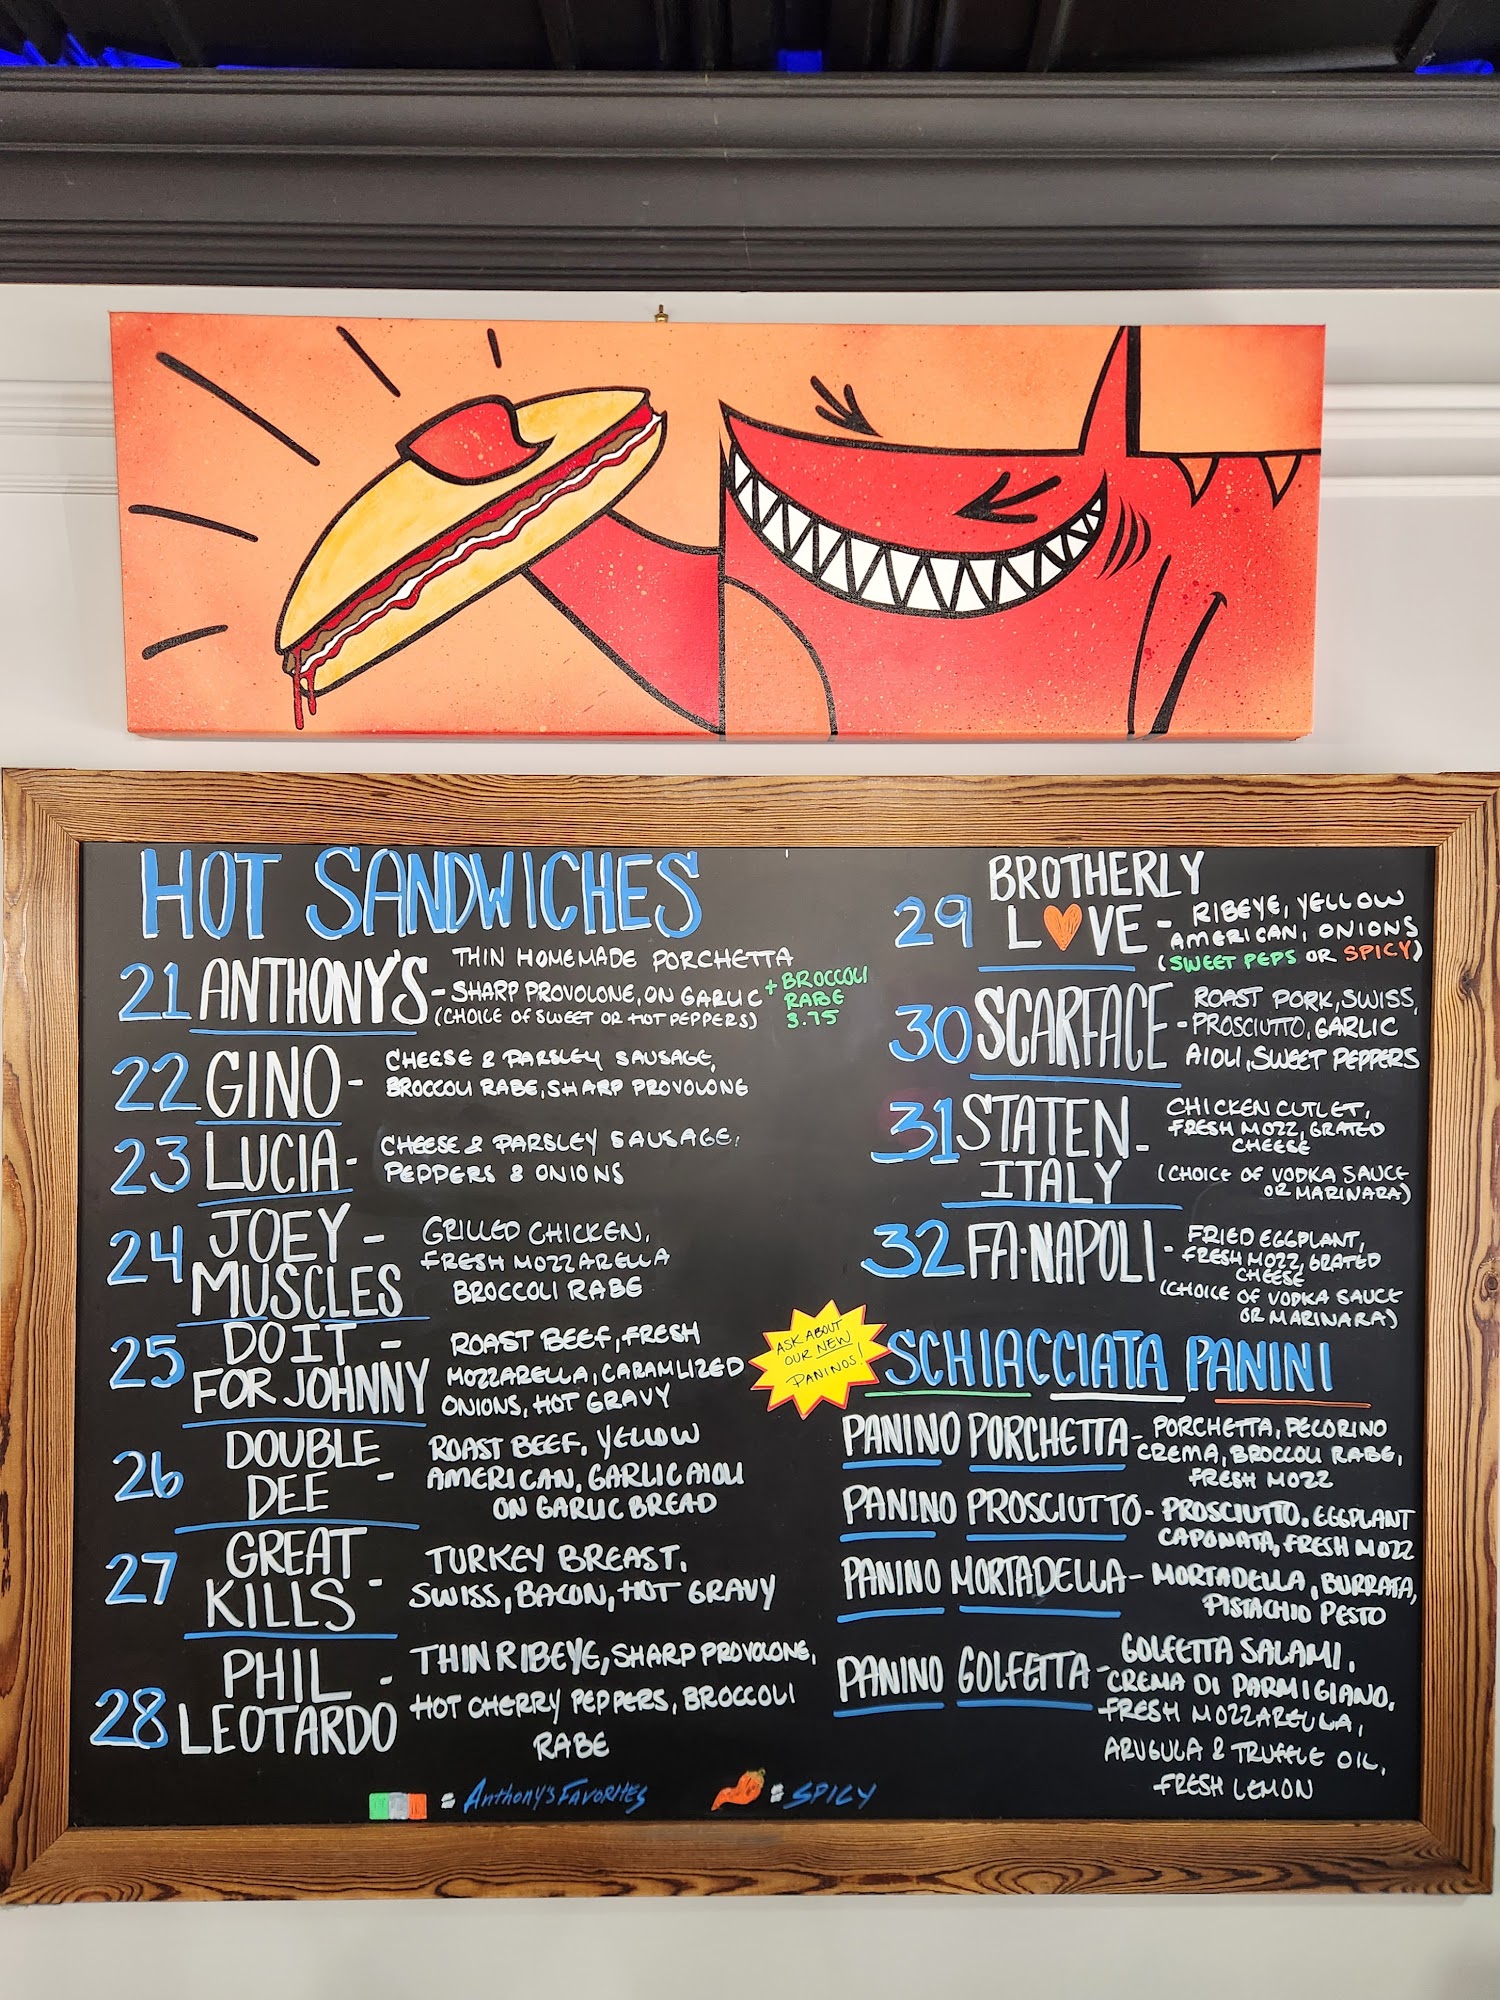 HOT SANDWICHES
21 ANTHONY'S - THIN HOMEMADE PORCHETTA
SHARP PROVOLONE, ON GARLIC
(CHOICE OF SWEET OR HOT PEPPERS)
+ BROCCOLI
RABE
3.75
22 GINO - CHEESE & PARSLEY SAUSAGE,
BROCCOLI RABE, SHARP PROVOLONE
23 LUCIA - CHEESE & PARSLEY SAUSAGE,
PEPPERS & ONIONS
24 JOEY -
MUSCLES
GRILLED CHICKEN,
FRESH MOZZARELLA
BROCCOLI RABE
25 DO IT -
FOR JOHNNY
ROAST BEEF, FRESH
MOZZARELLA, CARAMLIZED
ONIONS, HOT GRAVY
26 DOUBLE
DEE -
ROAST BEEF, YELLOW
AMERICAN, GARLIC AIOLI
ON GARLIC BREAD
27 GREAT
KILLS -
TURKEY BREAST,
SWISS, BACON, HOT GRAVY
28 PHIL -
LEOTARDO
THIN RIBEYE, SHARP PROVOLONE,
HOT CHERRY PEPPERS, BROCCOLI
RABE
= Anthony's FAVORITES
= SPICY
29 BROTHERLY
LOVE -
RIBEYE, YELLOW
AMERICAN, ONIONS
(SWEET PEPS OR SPICY)
30 SCARFACE - ROAST PORK, SWISS,
PROSCIUTTO, GARLIC
AIOLI, SWEET PEPPERS
31 STATEN -
ITALY
CHICKEN CUTLET,
FRESH MOZZ, GRATED
CHEESE
(CHOICE OF VODKA SAUCE
OR MARINARA)
32 FA·NAPOLI - FRIED EGGPLANT,
FRESH MOZZ, GRATED
CHEESE
(CHOICE OF VODKA SAUCE
OR MARINARA)
ASK ABOUT
OUR NEW
PANINOS!
SCHIACCIATA PANINI
PANINO PORCHETTA - PORCHETTA, PECORINO
CREMA, BROCCOLI RABE,
FRESH MOZZ
PANINO PROSCIUTTO - PROSCIUTTO, EGGPLANT
CAPONATA, FRESH MOZZ
PANINO MORTADELLA - MORTADELLA, BURRATA,
PISTACHIO PESTO
PANINO GOLFETTA - GOLFETTA SALAMI,
CREMA DI PARMIGIANO,
FRESH MOZZARELLA,
ARUGULA & TRUFFLE OIL,
FRESH LEMON